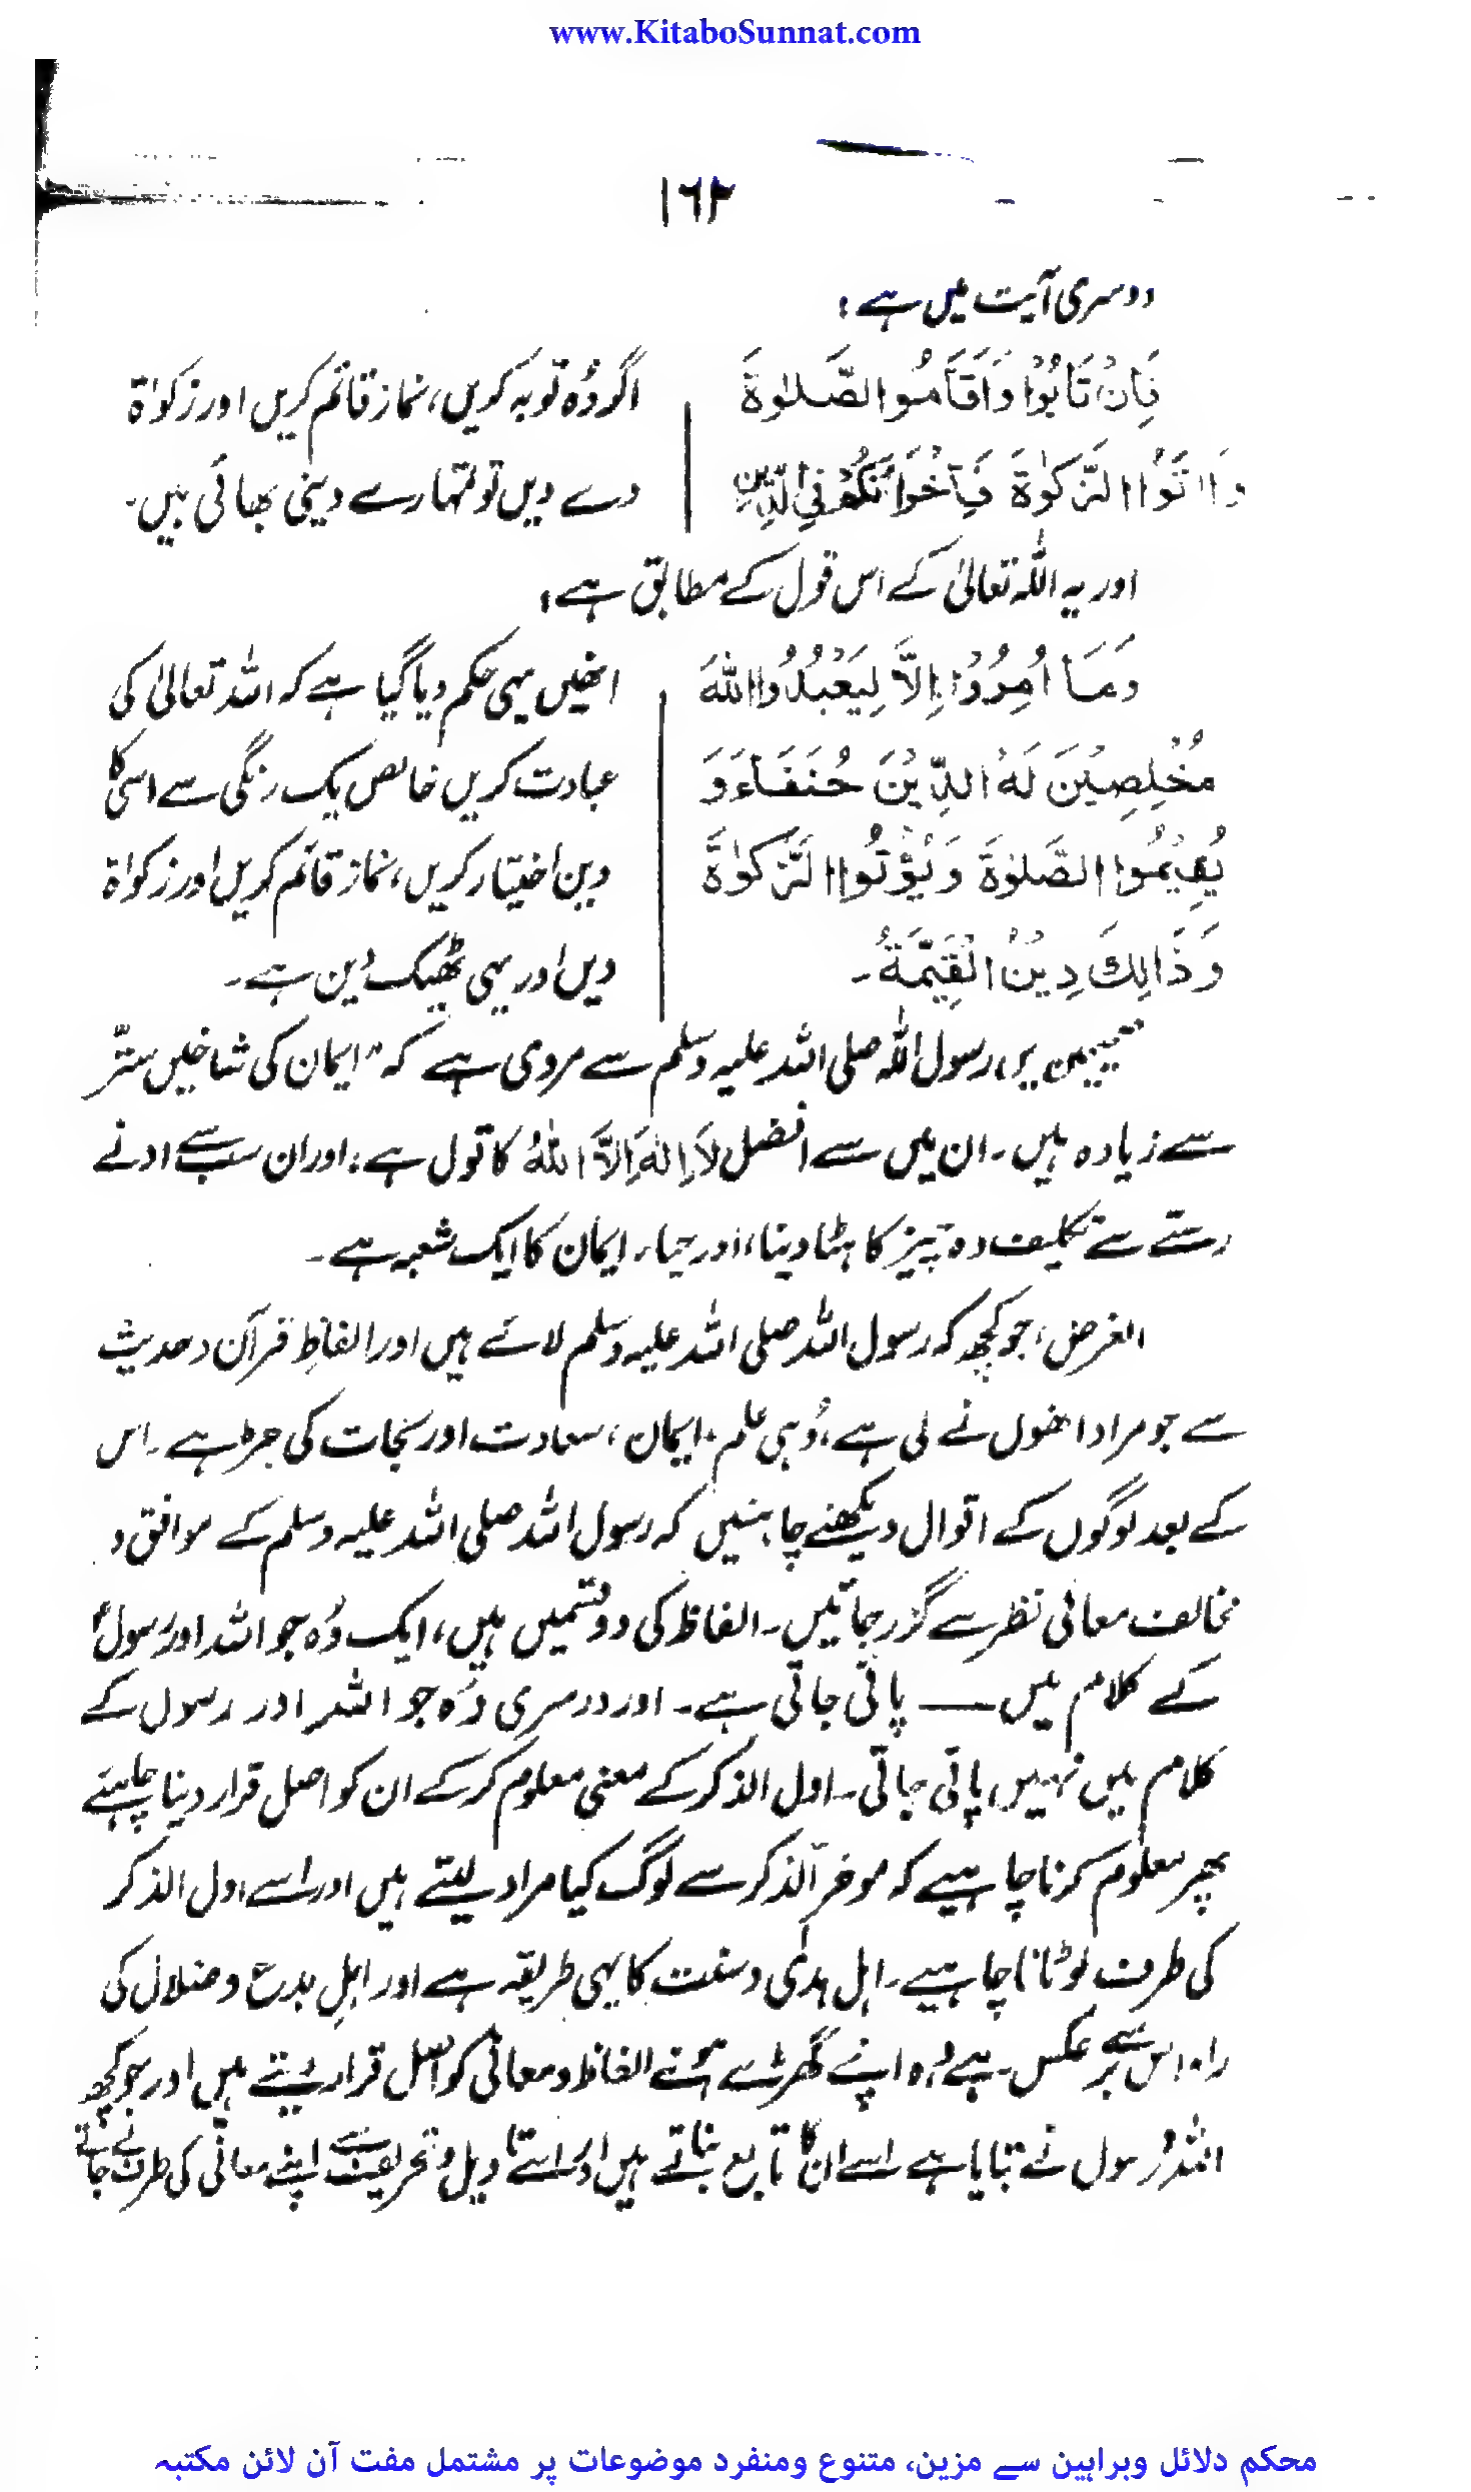 www.KitaboSunnat.com
۱۶۲
دوسری آیت میں ہے:
فَاِنْ تَابُوْا وَاَقَامُوا الصَّلٰوةَ
وَاٰتَوُا الزَّكوٰةَ فَاِخْوَانُكُمْ فِي الدِّيْنِ
اگر وُہ توبہ کریں، نماز قائم کریں اور زکوٰۃ
دے دیں تو تمہارے دینی بھائی ہیں۔
اور یہ اللہ تعالیٰ کے اس قول کے مطابق ہے:
وَمَا اُمِرُوْا اِلَّا لِيَعْبُدُوا اللهَ
مُخْلِصِيْنَ لَهُ الدِّيْنَ حُنَفَاءَ وَ
يُقِيْمُوا الصَّلٰوةَ وَيُؤْتُوا الزَّكوٰةَ
وَذَالِكَ دِيْنُ الْقَيِّمَةُ۔
انھیں یہی حکم دیا گیا ہے کہ اللہ تعالیٰ کی
عبادت کریں خالص یک رنگی سے اسی کا
دین اختیار کریں، نماز قائم کریں اور زکوٰۃ
دیں اور یہی ٹھیک دین ہے۔
رسول اللہ صلی اللہ علیہ وسلم سے مروی ہے کہ "ایمان کی شاخیں ستّر
سے زیادہ ہیں۔ ان میں سے افضل لَا اِلٰهَ اِلَّا اللهُ کا قول ہے، اور ان سب سے ادنے
رستے سے تکلیف دہ چیز کا ہٹا دینا، اور حیاء ایمان کا ایک شعبہ ہے۔
الغرض، جو کچھ کہ رسول اللہ صلی اللہ علیہ وسلم لائے ہیں اور الفاظِ قرآن و حدیث
سے جو مراد انھوں نے لی ہے، وُہی علم، ایمان، سعادت اور نجات کی جڑ ہے۔ اس
کے بعد لوگوں کے اقوال دیکھنے چاہئیں کہ رسول اللہ صلی اللہ علیہ وسلم کے موافق و
مخالف معانی نظر سے گزر جائیں۔ الفاظ کی دو قسمیں ہیں، ایک وُہ جو اللہ اور رسولؐ
کے کلام میں — پائی جاتی ہے۔ اور دوسری وُہ جو اللہ اور رسول کے
کلام میں نہیں پائی جاتی۔ اول الذکر کے معنی معلوم کرکے ان کو اصل قرار دینا چاہیئے
پھر معلوم کرنا چاہیے کہ موخر الذکر سے لوگ کیا مراد لیتے ہیں اور اسے اول الذکر
کی طرف لوٹانا چاہیے۔ اہل ہدیٰ و سنت کا یہی طریقہ ہے اور اہلِ بدع و ضلال کی
راہ اس سے برعکس ہے وُہ اپنے گھڑے ہوئے الفاظ و معانی کو اصل قرار دیتے ہیں اور جو کچھ
اللہ و رسول نے بتایا ہے اسے ان کا تابع بناتے ہیں اور اسے تاویل و تحریف سے اپنے معانی کی طرف لے جاتے
محکم دلائل وبراہین سے مزین، متنوع ومنفرد موضوعات پر مشتمل مفت آن لائن مکتبہ